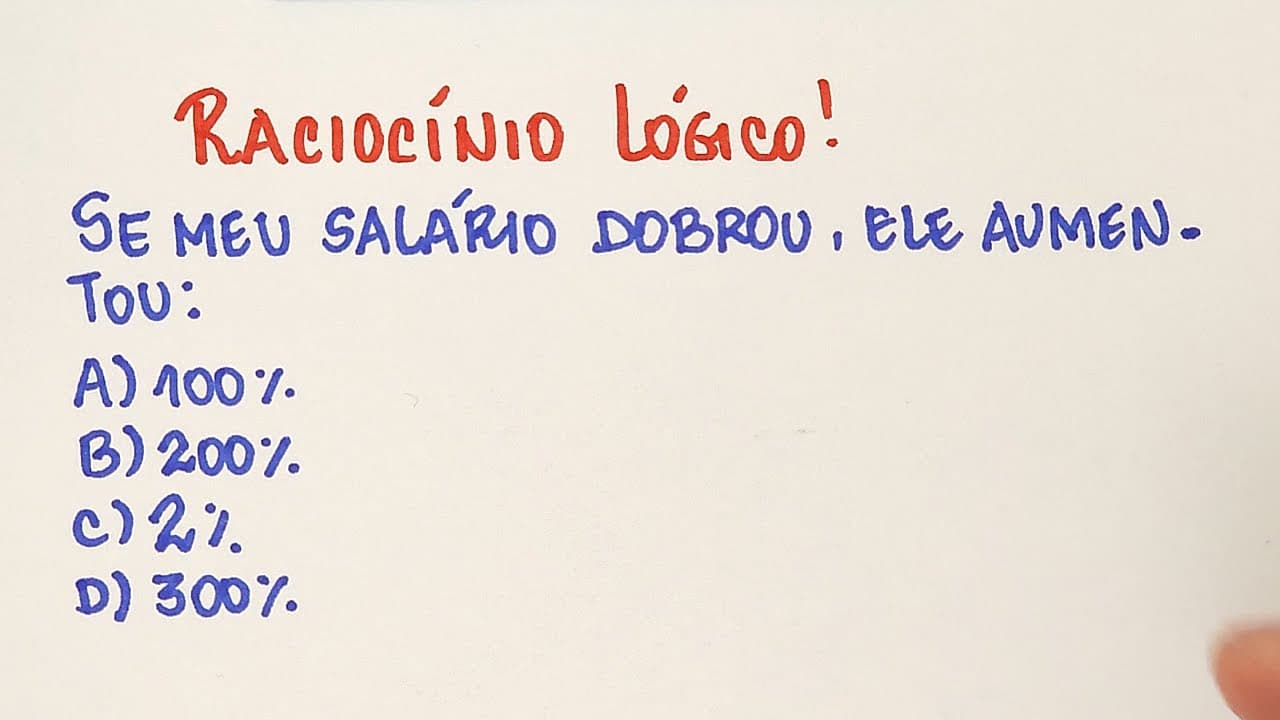 RACIOCÍNIO LÓGICO!
SE MEU SALÁRIO DOBROU, ELE AUMEN-
TOU:
A) 100%
B) 200%
C) 2%
D) 300%